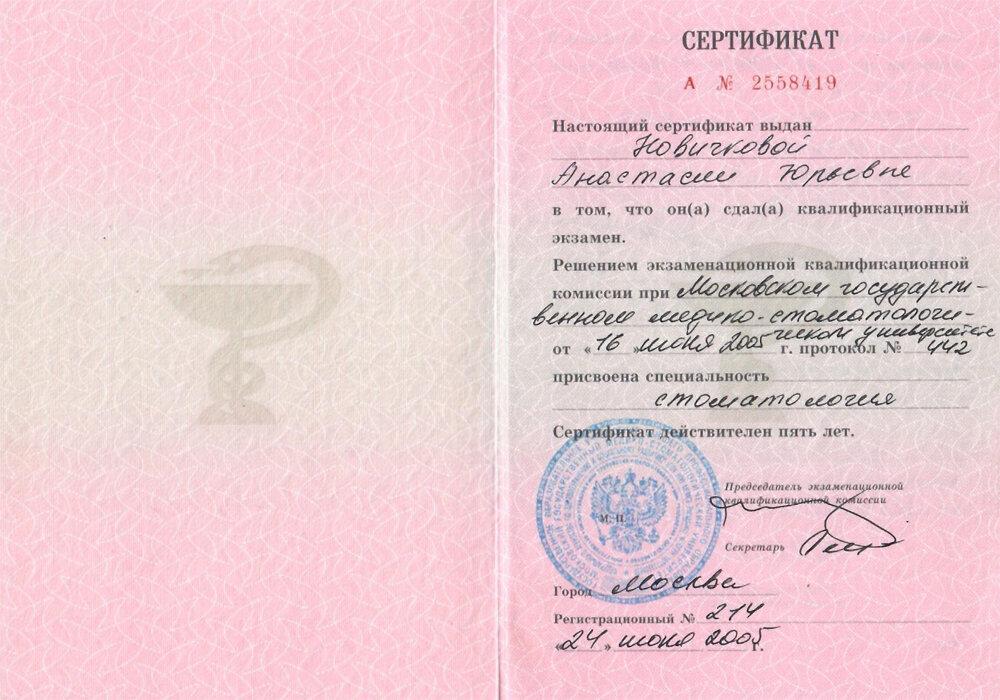 СЕРТИФИКАТ
А № 2558419
Настоящий сертификат выдан
Новичковой
Анастасии Юрьевне
в том, что он(а) сдал(а) квалификационный
экзамен.
Решением экзаменационной квалификационной
комиссии при Московском государст-
венном медико-стоматологи-
ческом университете
от «16» июня 2005 г. протокол № 442
присвоена специальность
стоматология
Сертификат действителен пять лет.
Председатель экзаменационной
квалификационной комиссии
М. П.
Секретарь
Город Москва
Регистрационный № 214
«24» июня 2005 г.